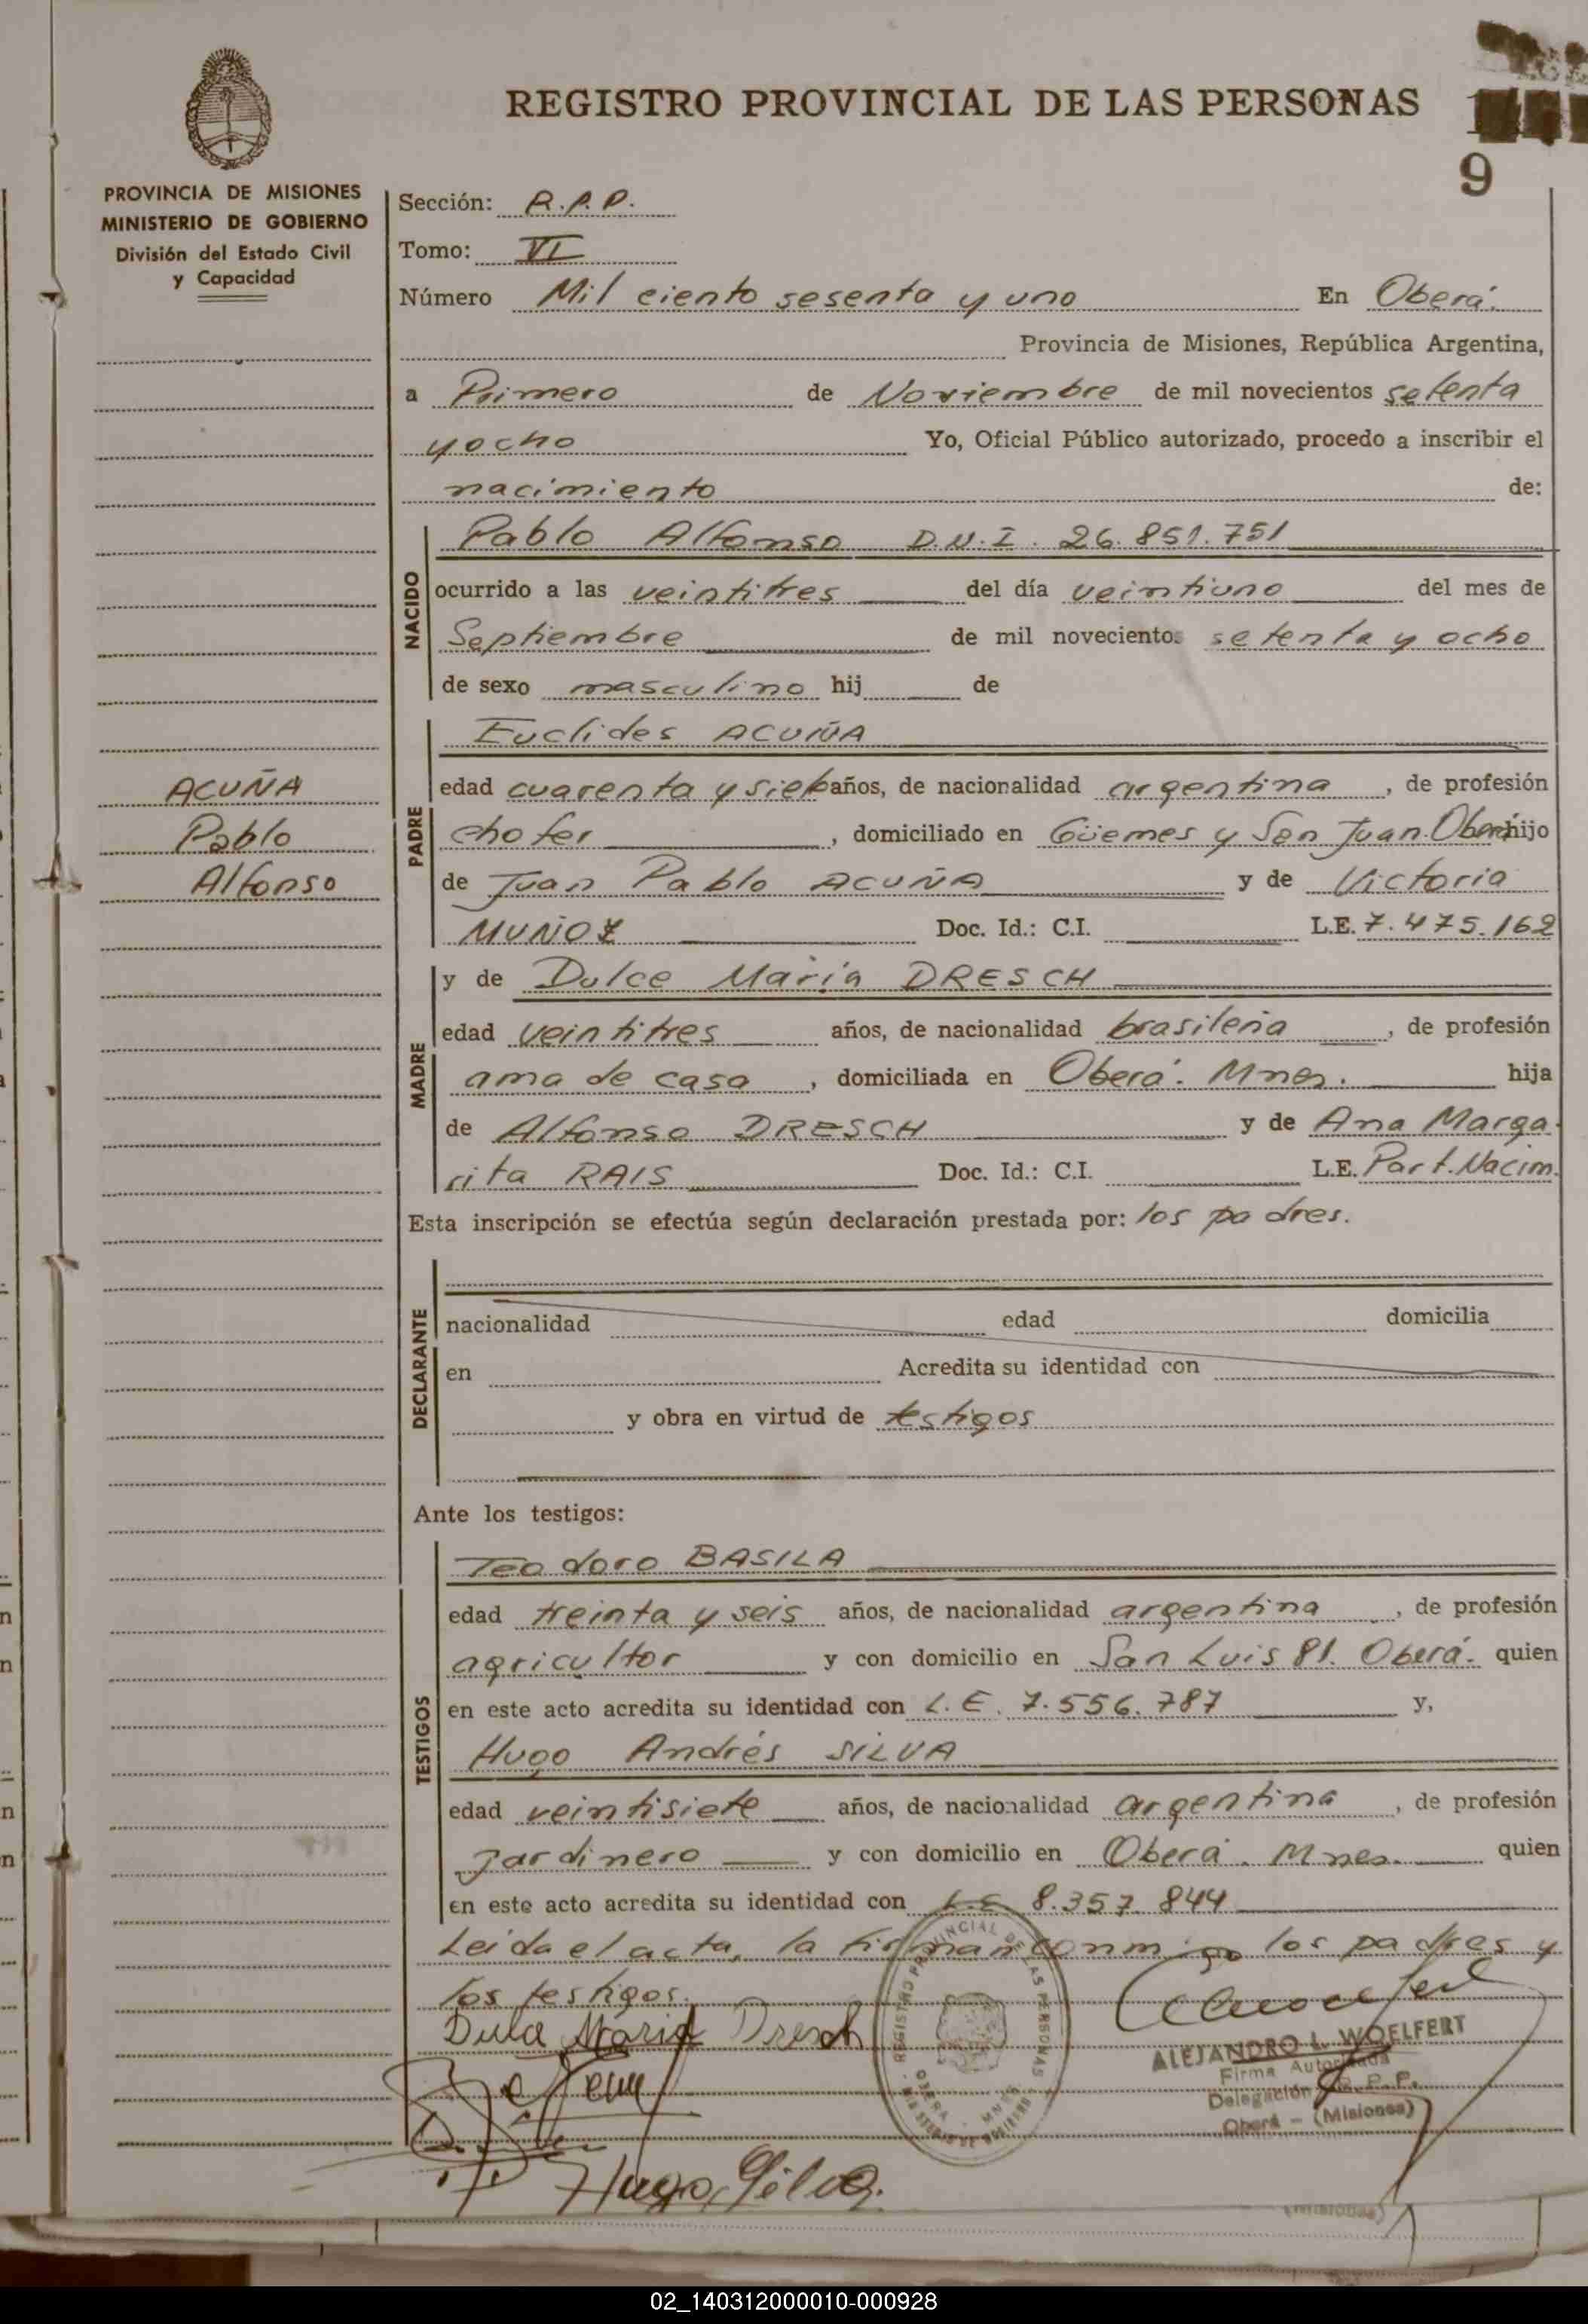 REGISTRO PROVINCIAL DE LAS PERSONAS
9
PROVINCIA DE MISIONES
MINISTERIO DE GOBIERNO
División del Estado Civil
y Capacidad
Sección: R.P.P.
Tomo: VI
Número Mil ciento sesenta y uno En Oberá.
Provincia de Misiones, República Argentina,
a Primero de Noviembre de mil novecientos setenta
y ocho Yo, Oficial Público autorizado, procedo a inscribir el
nacimiento de:
NACIDO
Pablo Alfonso D.N.I. 26.851.751
ocurrido a las veintitres del día veintiuno del mes de
Septiembre de mil novecientos setenta y ocho
de sexo masculino hij de
PADRE
Euclides ACUÑA
ACUÑA
Pablo
Alfonso
edad cuarenta y siete años, de nacionalidad argentina, de profesión
chofer, domiciliado en Güemes y San Juan. Oberá hijo
de Juan Pablo ACUÑA y de Victoria
MUÑOZ Doc. Id.: C.I. L.E. 7.475.162
MADRE
y de Dulce María DRESCH
edad veintitres años, de nacionalidad brasileña, de profesión
ama de casa, domiciliada en Oberá. Mnes. hija
de Alfonso DRESCH y de Ana Marga-
rita RAIS Doc. Id.: C.I. L.E. Part. Nacim.
Esta inscripción se efectúa según declaración prestada por: los padres.
DECLARANTE
nacionalidad edad domicilia
en Acredita su identidad con
y obra en virtud de testigos
Ante los testigos:
TESTIGOS
Teodoro BASILA
edad treinta y seis años, de nacionalidad argentina, de profesión
agricultor y con domicilio en San Luis 81. Oberá. quien
en este acto acredita su identidad con L.E. 7.556.787 y,
Hugo Andrés SILVA
edad veintisiete años, de nacionalidad argentina, de profesión
Jardinero y con domicilio en Oberá. Mnes. quien
en este acto acredita su identidad con L.E 8.357.844
Leida el acta, la firman conmigo los padres y
los testigos.
Dulce Maria Dresch
REGISTRO PROVINCIAL DE LAS PERSONAS
ALEJANDRO L. WOELFERT
Firma Autorizada
Delegación R.P.P.
Oberá - (Misiones)
Hugo Silva.
(Misiones)
02_140312000010-000928